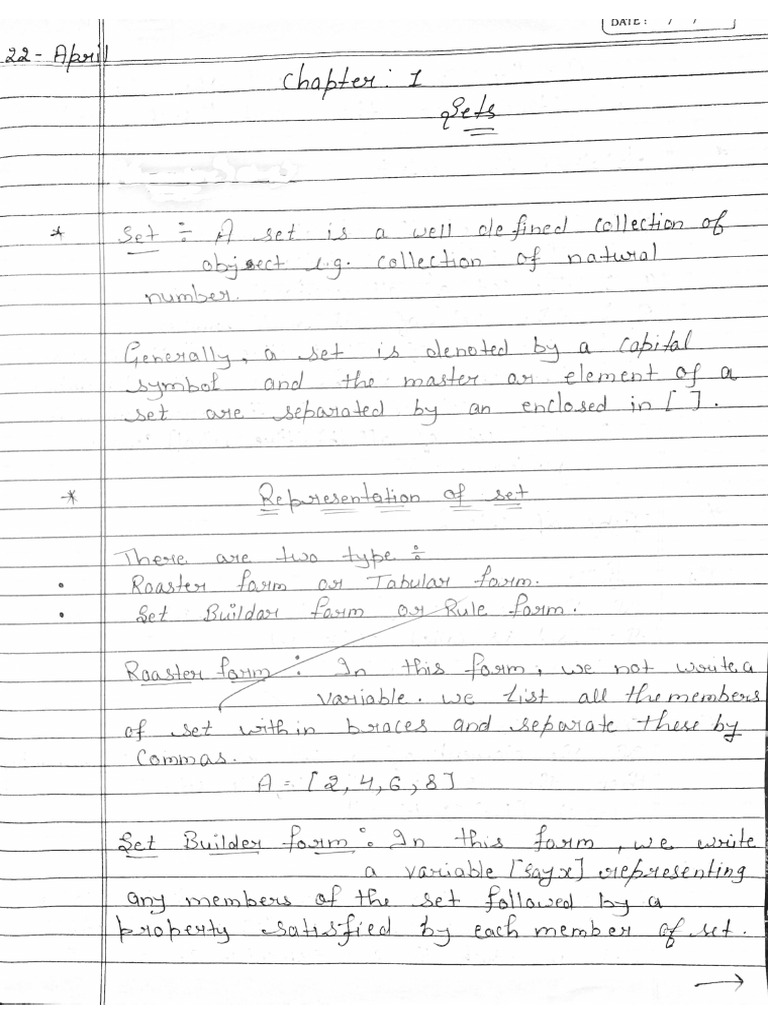 DATE: / /
22 - April
Chapter: 1
Sets
* Set ÷ A set is a well defined collection of
object e.g. collection of natural
number.
Generally, a set is denoted by a capital
symbol and the master or element of a
set are separated by an enclosed in [ ].
* Representation of set
There are two type ÷
• Roaster form or Tabular form.
• Set Buildar form or Rule form.
Roaster form : In this form, we not write a
variable. we list all the members
of set with in braces and separate these by
commas.
A = [2, 4, 6, 8]
Set Builder form : In this form, we write
a variable [say x] representing
any members of the set followed by a
property satisfied by each member of set.
→